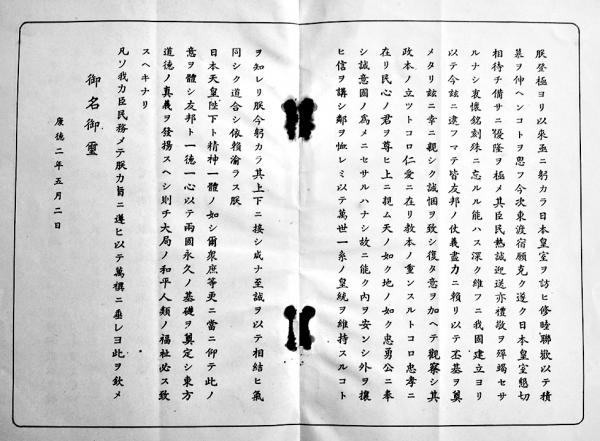 朕登極ヨリ以來亟ニ躬カラ日本皇室ヲ訪ヒ修睦聯歡以テ積
慕ヲ伸ヘンコトヲ思フ今次東渡宿願克ク遂ク日本皇室懇切
相待チ備サニ優隆ヲ極メ其臣民熱誠迎送亦禮敬ヲ殫竭セサ
ルナシ衷懷銘刻殊ニ忘ルル能ハス深ク維フニ我國建立ヨリ
以テ今茲ニ逮フマテ皆友邦ノ仗義盡力ニ賴リ以テ丕基ヲ奠
メタリ玆ニ幸ニ親シク誠悃ヲ致シ復タ意ヲ加ヘテ觀察シ其
政本ノ立ツトコロ仁愛ニ在リ教本ノ重ンスルトコロ忠孝ニ
在リ民心ノ君ヲ尊ヒ上ニ親ム天ノ如ク地ノ如ク忠勇公ニ奉
シ誠意國ノ為メニセサルハナシ故ニ能ク內ヲ安ンシ外ヲ攘
ヒ信ヲ講シ鄰ヲ恤レミ以テ萬世一系ノ皇統ヲ維持スルコト
ヲ知レリ朕今躬カラ其上下ニ接シ咸ナ至誠ヲ以テ相結ヒ氣
同シク道合シ依賴渝ラス朕
日本天皇陛下ト精神一體ノ如シ爾衆庶等更ニ當ニ仰テ此ノ
意ヲ體シ友邦ト一德一心以テ兩國永久ノ基礎ヲ奠定シ東方
道德ノ真義ヲ發揚スヘシ則チ大局ノ和平人類ノ福祉必ス致
スヘキナリ
凡ソ我カ臣民務メテ朕カ旨ニ遵ヒ以テ萬禩ニ垂レヨ此ヲ欽メ
御名御璽
康德二年五月二日